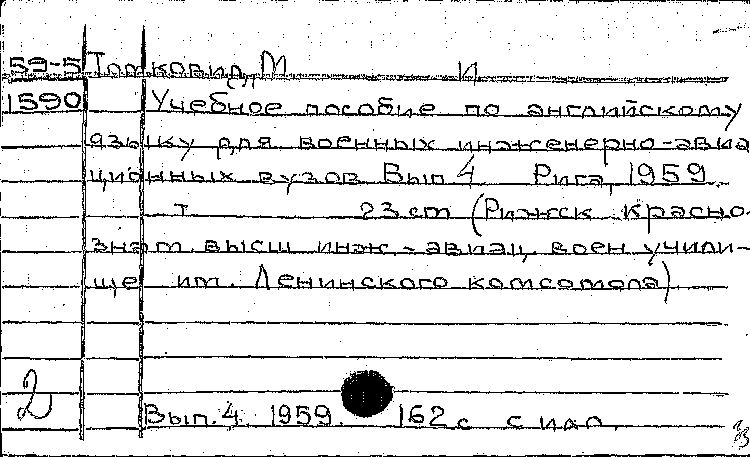 59-5 Томкович, М И
1590 Учебное пособие по английскому
языку для военных инженерно-авиа
ционных вузов Вып 4 Рига, 1959.
т. 23 см (Рижск красно-
знам. высш инж.-авиац. воен учили-
ще им. Ленинского комсомола)
2 Вып. 4. 1959. 162 с с илл.